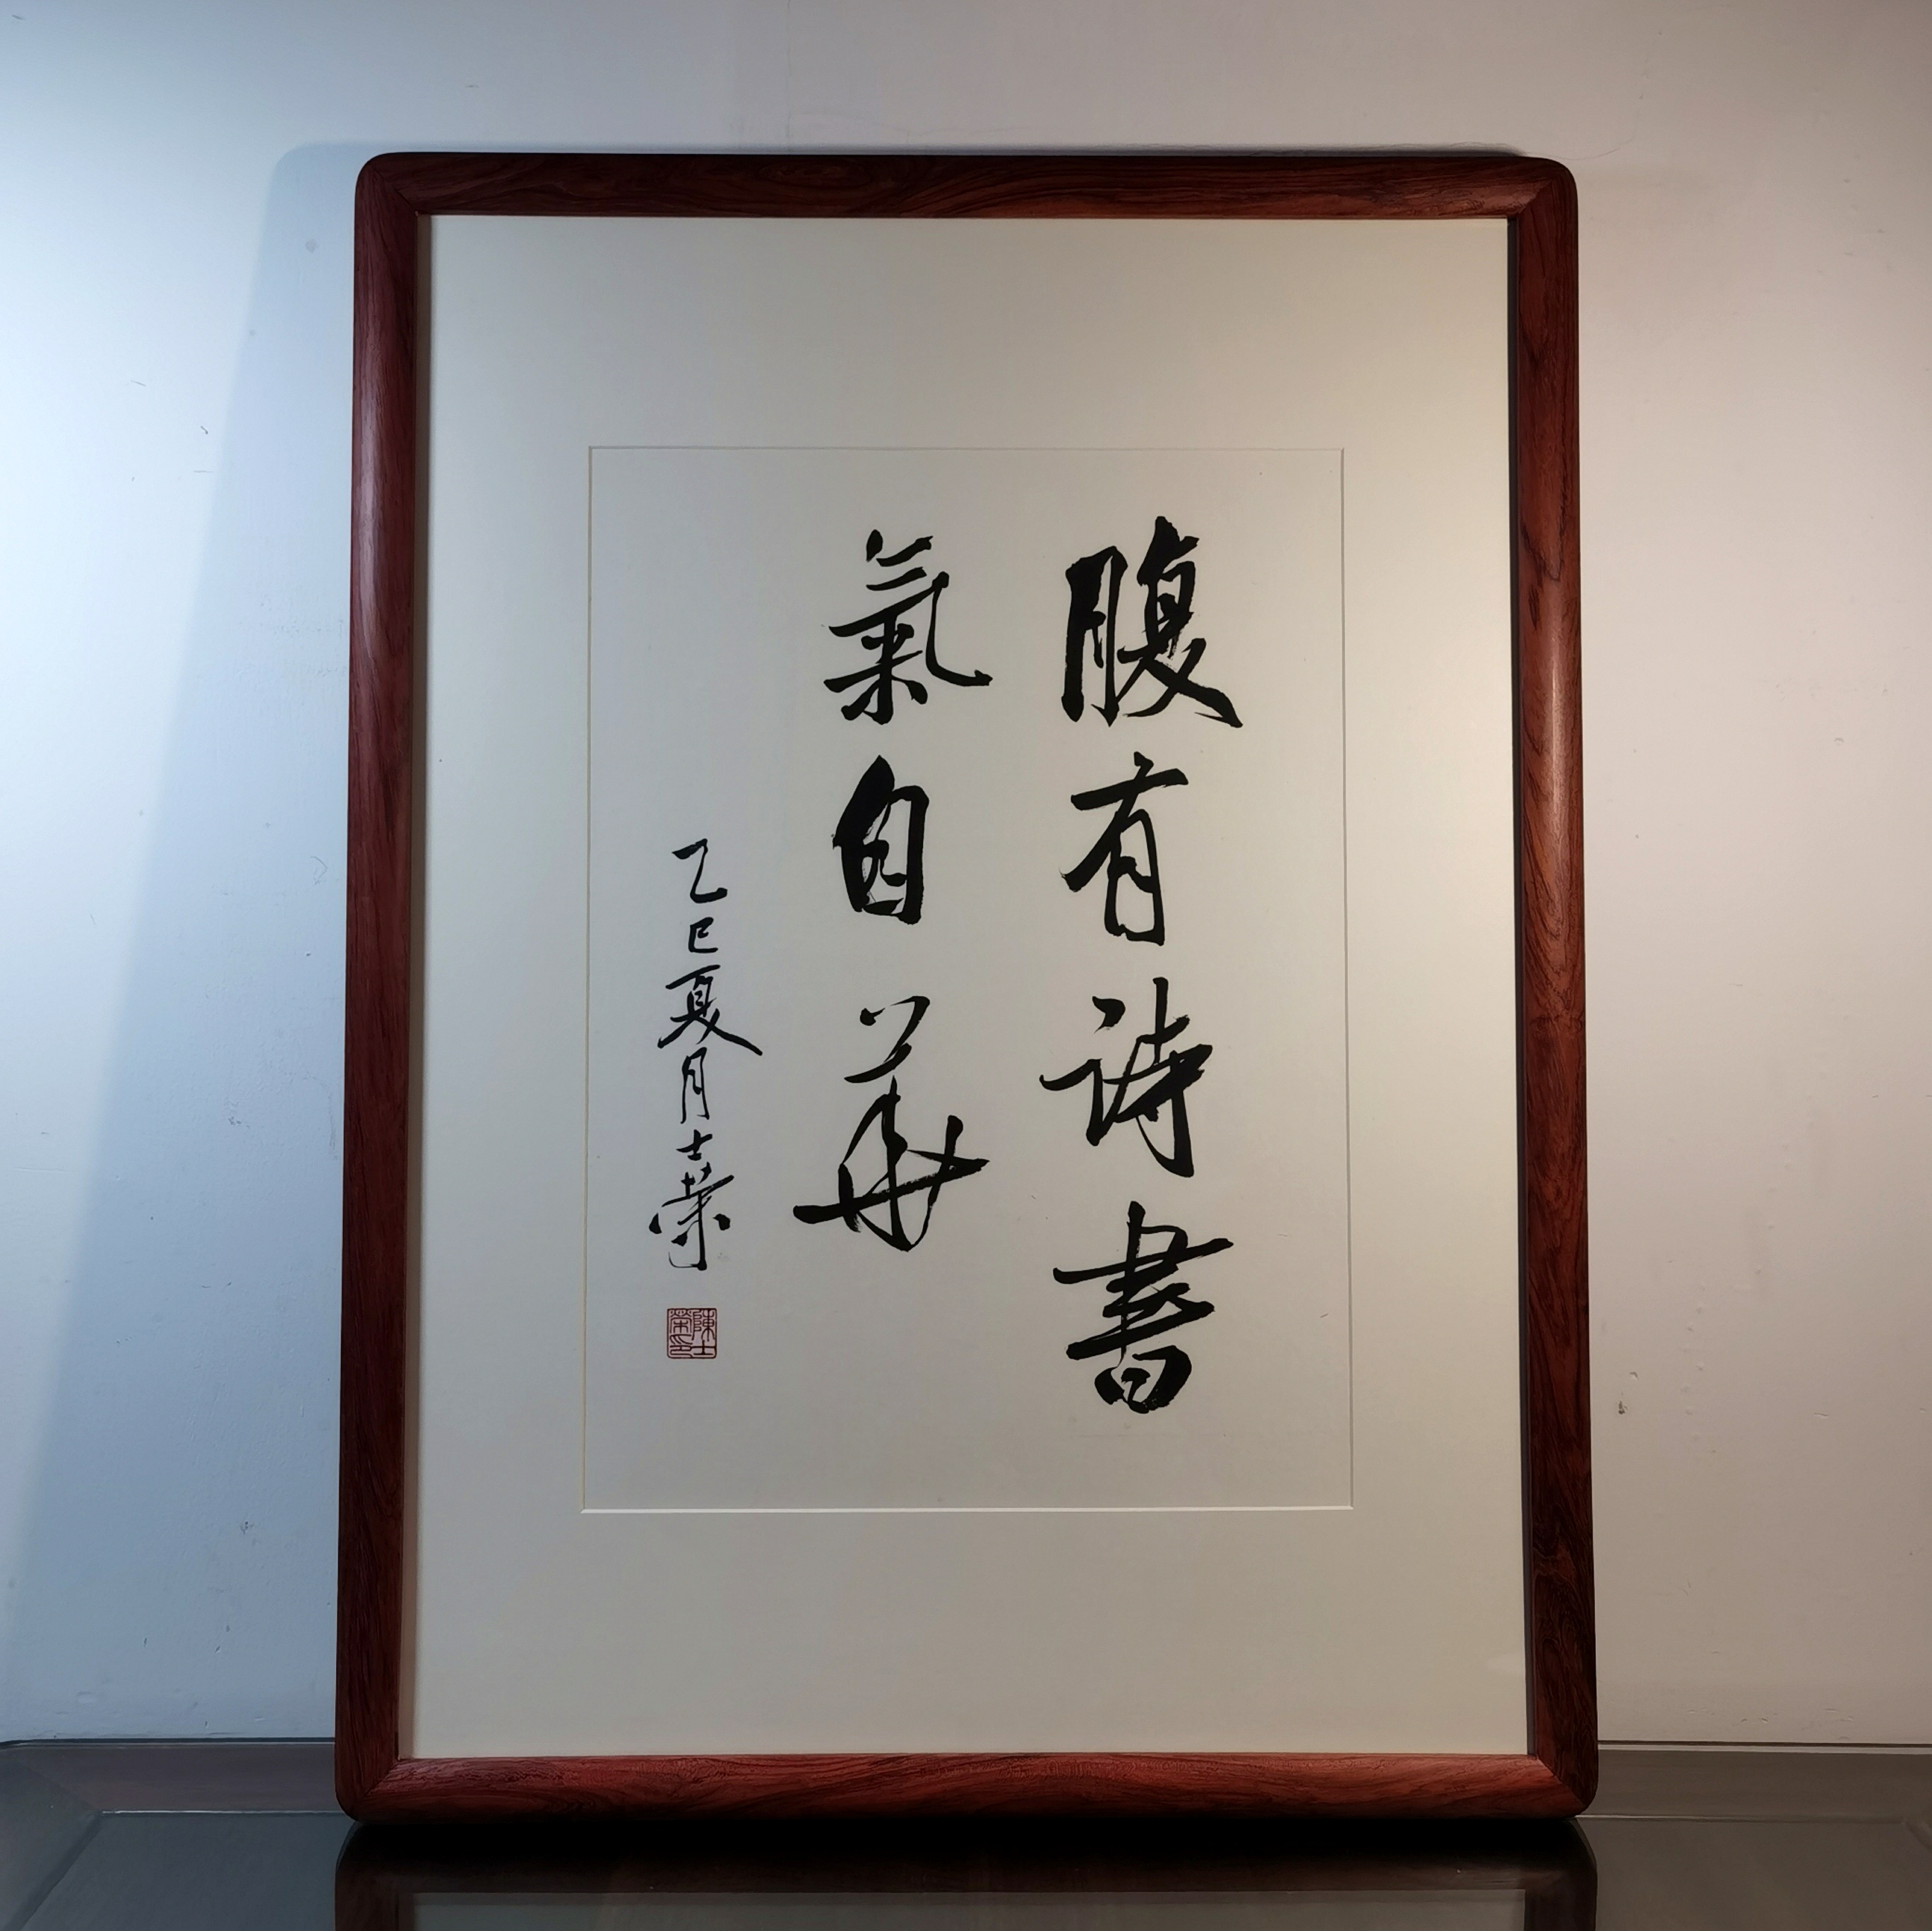 腹有詩書
氣自華
乙巳夏月士榮
陳士榮印